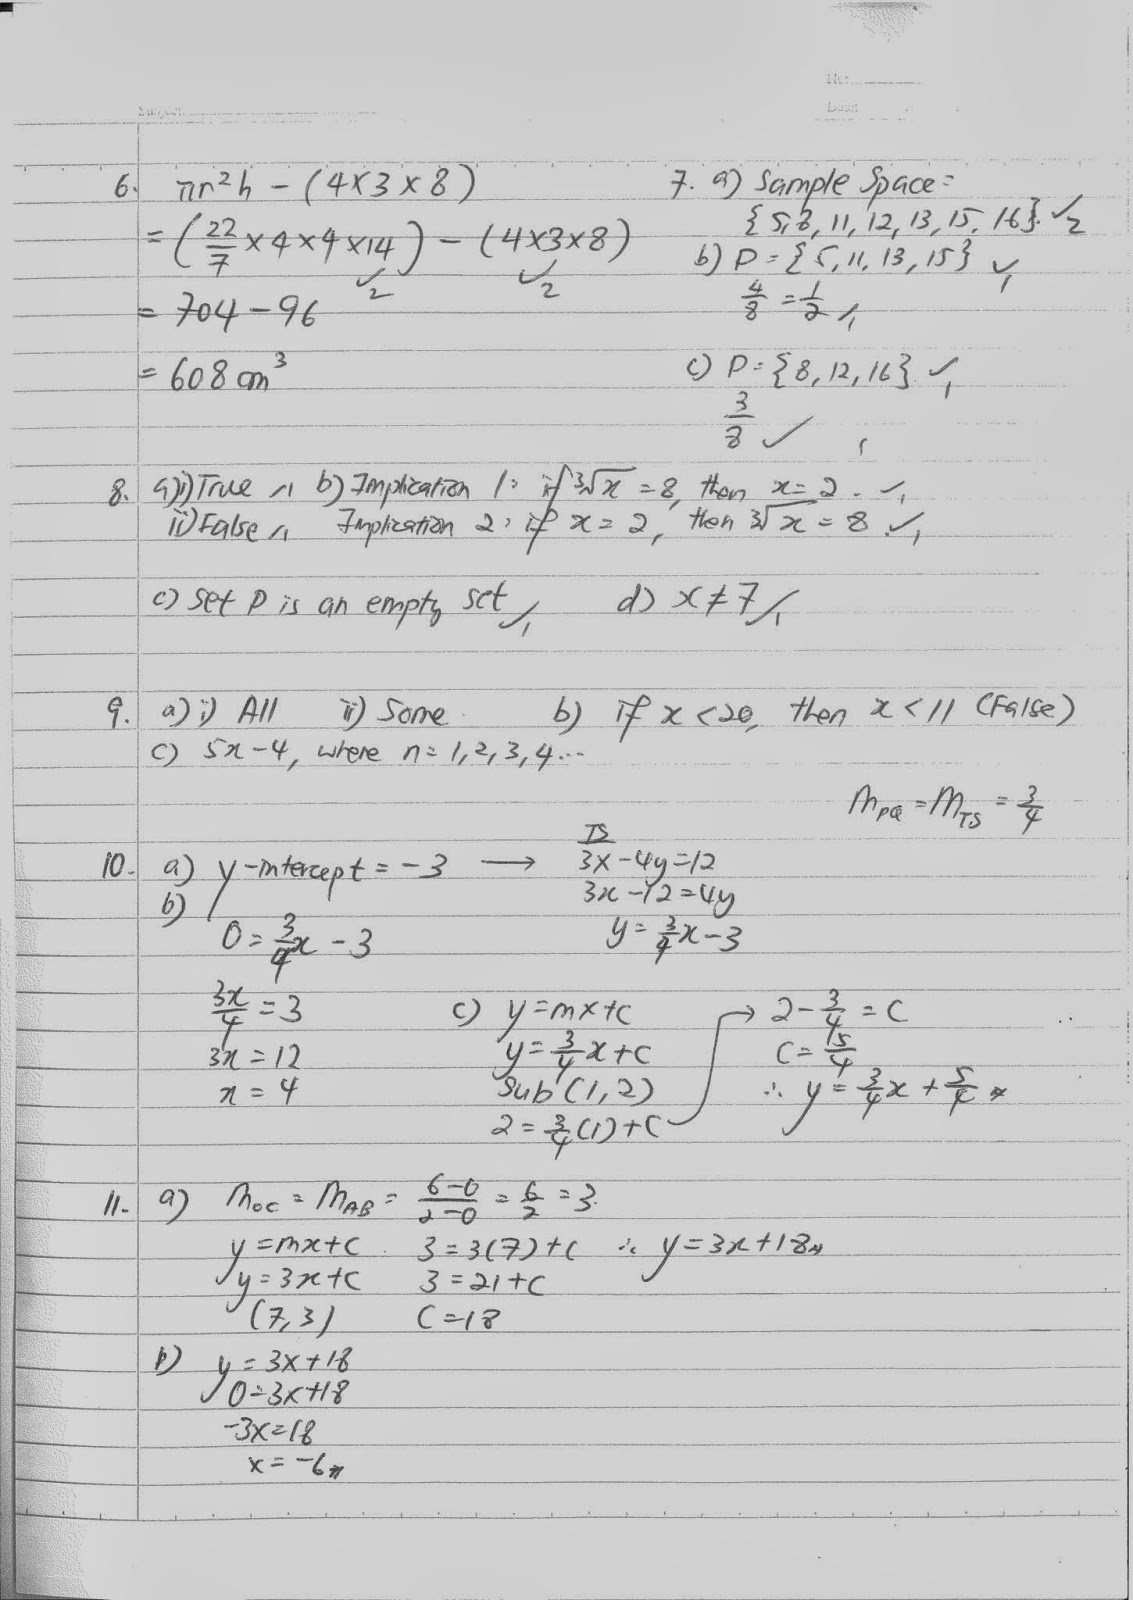 6. πr²h - (4×3×8)
= (22/7 × 4 × 4 × 14) - (4×3×8)
✓2 ✓2
= 704 - 96
= 608 cm³
7. a) Sample Space =
{5, 8, 11, 12, 13, 15, 16} ✓2
b) P = {5, 11, 13, 15} ✓1
4/8 = 1/2 ✓1
c) P = {8, 12, 16} ✓1
3/8 ✓ 1
8. a) i) True ✓1 b) Implication 1: if ³√x = 8, then x = 2. ✓1
ii) False ✓1 Implication 2: if x = 2, then ³√x = 8 ✓1
c) set P is an empty set ✓1 d) x ≠ 7 ✓1
9. a) i) All ii) Some b) if x < 20, then x < 11 (False)
c) 5n - 4, where n = 1, 2, 3, 4...
m_PQ = m_TS = 3/4
10. a) y-intercept = -3 →
TS
3x - 4y = 12
3x - 12 = 4y
y = 3/4 x - 3
b)
0 = 3/4 x - 3
3x/4 = 3
3x = 12
x = 4
c) y = mx + c
y = 3/4 x + c
Sub (1, 2)
2 = 3/4 (1) + c
→ 2 - 3/4 = c
c = 5/4
∴ y = 3/4 x + 5/4
11. a) m_OC = m_AB = 6-0/2-0 = 6/2 = 3
y = mx + c 3 = 3(7) + c ∴ y = 3x + 18
y = 3x + c 3 = 21 + c
(7, 3) c = 18
b) y = 3x + 18
0 = 3x + 18
-3x = 18
x = -6